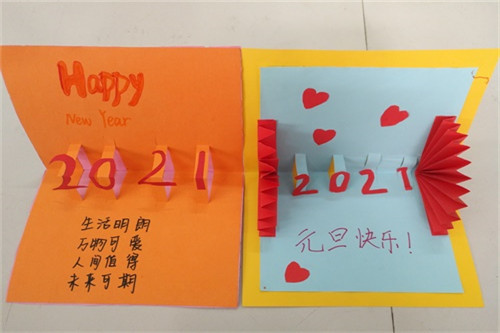 Happy
New Year
2021
生活明朗
万物可爱
人间值得
未来可期
2021
元旦快乐!